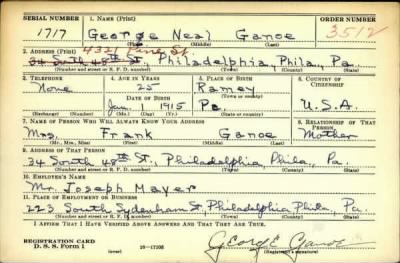 SERIAL NUMBER 1. NAME (Print) ORDER NUMBER
1717 George Neal Ganoe 3512
(First) (Middle) (Last)
4321 Pine St.
2. ADDRESS (Print)
34 South 48th St., Philadelphia, Phila., Pa.
(Number and street or R. F. D. number) (Town) (County) (State)
3. TELEPHONE 4. AGE IN YEARS 5. PLACE OF BIRTH 6. COUNTRY OF CITIZENSHIP
None 25 Ramey
DATE OF BIRTH (Town or county)
Jan. 1 1915 Pa. U.S.A.
(Exchange) (Number) (Mo.) (Day) (Yr.) (State or country)
7. NAME OF PERSON WHO WILL ALWAYS KNOW YOUR ADDRESS 8. RELATIONSHIP OF THAT PERSON
Mrs. Frank Ganoe Mother
(Mr., Mrs., Miss) (First) (Middle) (Last)
9. ADDRESS OF THAT PERSON
34 South 48th St., Philadelphia, Phila., Pa.
(Number and street or R. F. D. number) (Town) (County) (State)
10. EMPLOYER'S NAME
Mr. Joseph Mayer
11. PLACE OF EMPLOYMENT OR BUSINESS
223 South Sydenham St., Philadelphia, Phila., Pa.
(Number and street or R. F. D. number) (Town) (County) (State)
I AFFIRM THAT I HAVE VERIFIED ABOVE ANSWERS AND THAT THEY ARE TRUE.
REGISTRATION CARD
D. S. S. Form 1 (over) 16-17105
George Ganoe
(Registrant's signature)